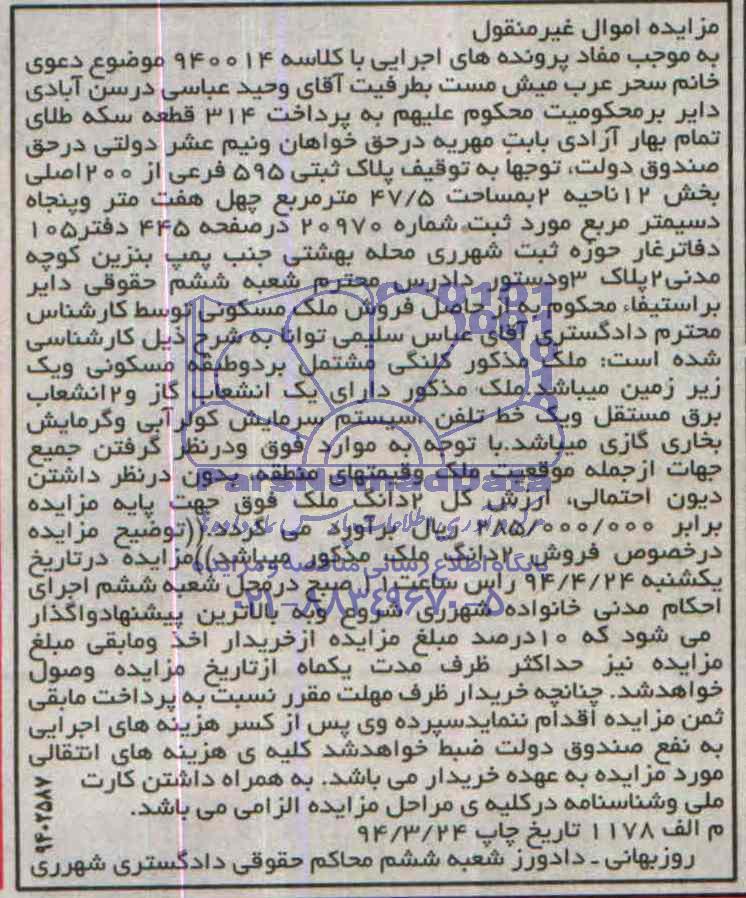 مزایده اموال غیرمنقول
به موجب مفاد پرونده های اجرایی با کلاسه ۹۴۰۰۱۴ موضوع دعوی
خانم سحر عرب میش مست بطرفیت آقای وحید عباسی درسن آبادی
دایر برمحکومیت محکوم علیهم به پرداخت ۳۱۴ قطعه سکه طلای
تمام بهار آزادی بابت مهریه درحق خواهان ونیم عشر دولتی درحق
صندوق دولت، توجها به توقیف پلاک ثبتی ۵۹۵ فرعی از ۲۰۰اصلی
بخش ۱۲ناحیه ۲بمساحت ۴۷/۵ مترمربع چهل هفت متر وپنجاه
دسیمتر مربع مورد ثبت شماره ۲۰۹۷۰ درصفحه ۴۴۵ دفتر۱۰۵
دفاترغار حوزه ثبت شهرری محله بهشتی جنب پمپ بنزین کوچه
مدنی۲پلاک ۳ودستور دادرس محترم شعبه ششم حقوقی دایر
براستیفاء محکوم به از حاصل فروش ملک مسکونی توسط کارشناس
محترم دادگستری آقای عباس سلیمی توانا به شرح ذیل کارشناسی
شده است: ملک مذکور کلنگی مشتمل بردوطبقه مسکونی ویک
زیر زمین میباشد.ملک مذکور دارای یک انشعاب گاز و۲انشعاب
برق مستقل ویک خط تلفن ،سیستم سرمایش کولرآبی وگرمایش
بخاری گازی میباشد.با توجه به موارد فوق ودرنظر گرفتن جمیع
جهات ازجمله موقعیت ملک وقیمتهای منطقه، بدون درنظر داشتن
دیون احتمالی، ارزش کل ۲دانگ ملک فوق جهت پایه مزایده
برابر ۳۸۵/۰۰۰/۰۰۰ ریال برآورد می گردد.((توضیح مزایده
درخصوص فروش ۲دانگ ملک مذکور میباشد))مزایده درتاریخ
یکشنبه ۹۴/۴/۲۴ راس ساعت۱۱ صبح درمحل شعبه ششم اجرای
احکام مدنی خانواده شهرری شروع وبه بالاترین پیشنهادواگذار
می شود که ۱۰درصد مبلغ مزایده ازخریدار اخذ ومابقی مبلغ
مزایده نیز حداکثر ظرف مدت یکماه ازتاریخ مزایده وصول
خواهدشد. چنانچه خریدار ظرف مهلت مقرر نسبت به پرداخت مابقی
ثمن مزایده اقدام ننمایدسپرده وی پس از کسر هزینه های اجرایی
به نفع صندوق دولت ضبط خواهدشد کلیه ی هزینه های انتقالی
مورد مزایده به عهده خریدار می باشد. به همراه داشتن کارت
ملی وشناسنامه درکلیه ی مراحل مزایده الزامی می باشد.
م الف ۱۱۷۸ تاریخ چاپ ۹۴/۳/۲۴
روزبهانی ـ دادورز شعبه ششم محاکم حقوقی دادگستری شهرری
۹۴۰۲۵۸۷
ParsNamadData
پایگاه اطلاع رسانی مناقصه و مزایده
۰۲۱-۸۸۳۴۹۶۷۰-۵